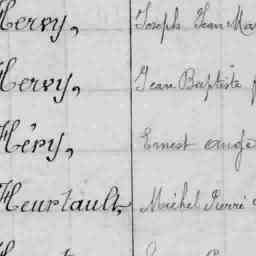 Hervy, Joseph Jean Mar
Hervy, Jean Baptiste
Héry, Ernest
Heurtault, Michel Pierre